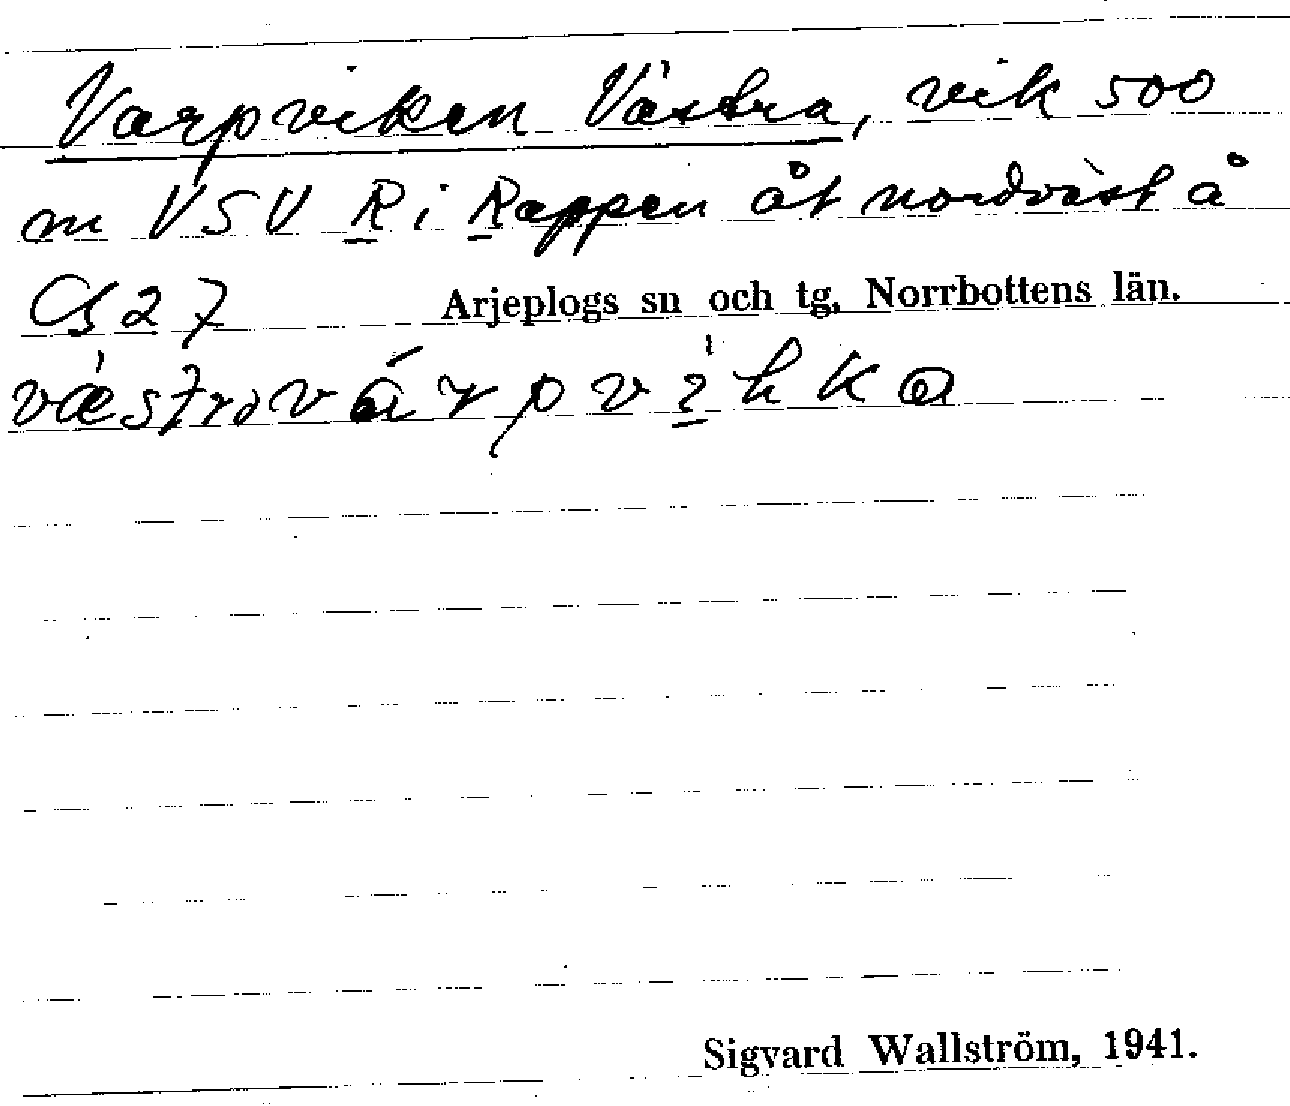 Varpviken Västra, vik 500
m VSV R i Rappen åt nordväst å
Cs 27 Arjeplogs sn och tg, Norrbottens län.
Sigvard Wallström, 1941.